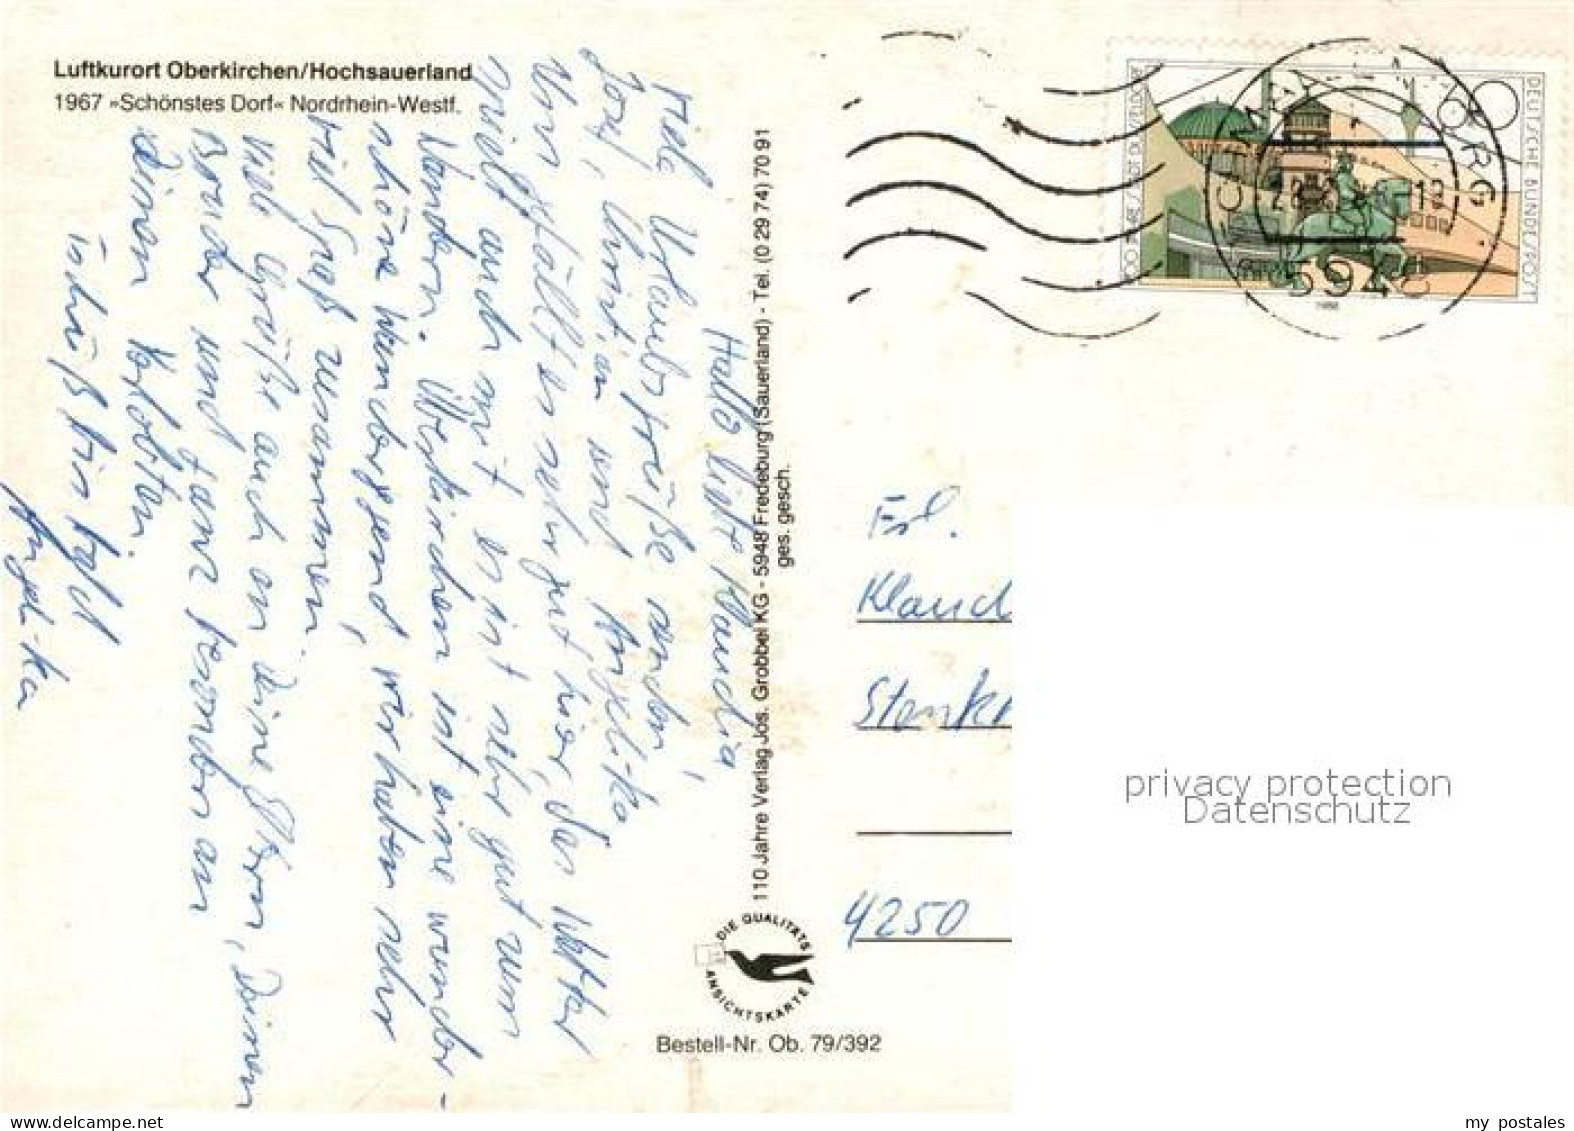 Luftkurort Oberkirchen/Hochsauerland
1967 »Schönstes Dorf« Nordrhein-Westf.
Hallo liebe Klaudia,
Viele Urlaubsgrüße senden
Josef, Christian und Angelika
Uns gefällt es sehr gut hier, das Wetter
spielt auch mit es ist sehr gut zum
Wandern. Oberkirchen ist eine wunder-
schöne Wandergegend, wir haben sehr
viel Spaß zusammen.
Viele Grüße auch an Deine Eltern, Deinen
Bruder und ganz besonders an
Deinen Verlobten.
Tschüß bis bald
Angelika
110 Jahre Verlag Jos. Grobbel KG - 5948 Fredeburg (Sauerland) - Tel. (0 29 74) 70 91
ges. gesch.
DIE QUALITÄTS
ANSICHTSKARTE
Bestell-Nr. Ob. 79/392
DEUTSCHE BUNDESPOST
80
1988
5948
Frl.
Klaud
Stenk
4250
privacy protection
Datenschutz
www.delcampe.net
my postales